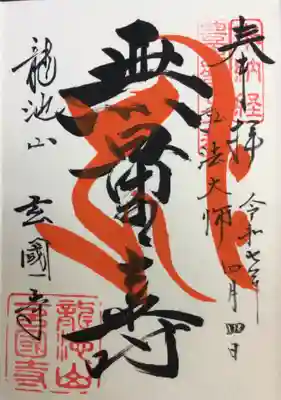 奉拝
弘法大師
令和七年
四月四日
無量寿
龍池山
玄國寺
龍池山
玄國寺